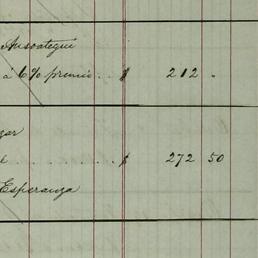 Ansoategui
á 6% premio .. $ 212 .
gar
é . . . . . . $ 272 50
Esperanza